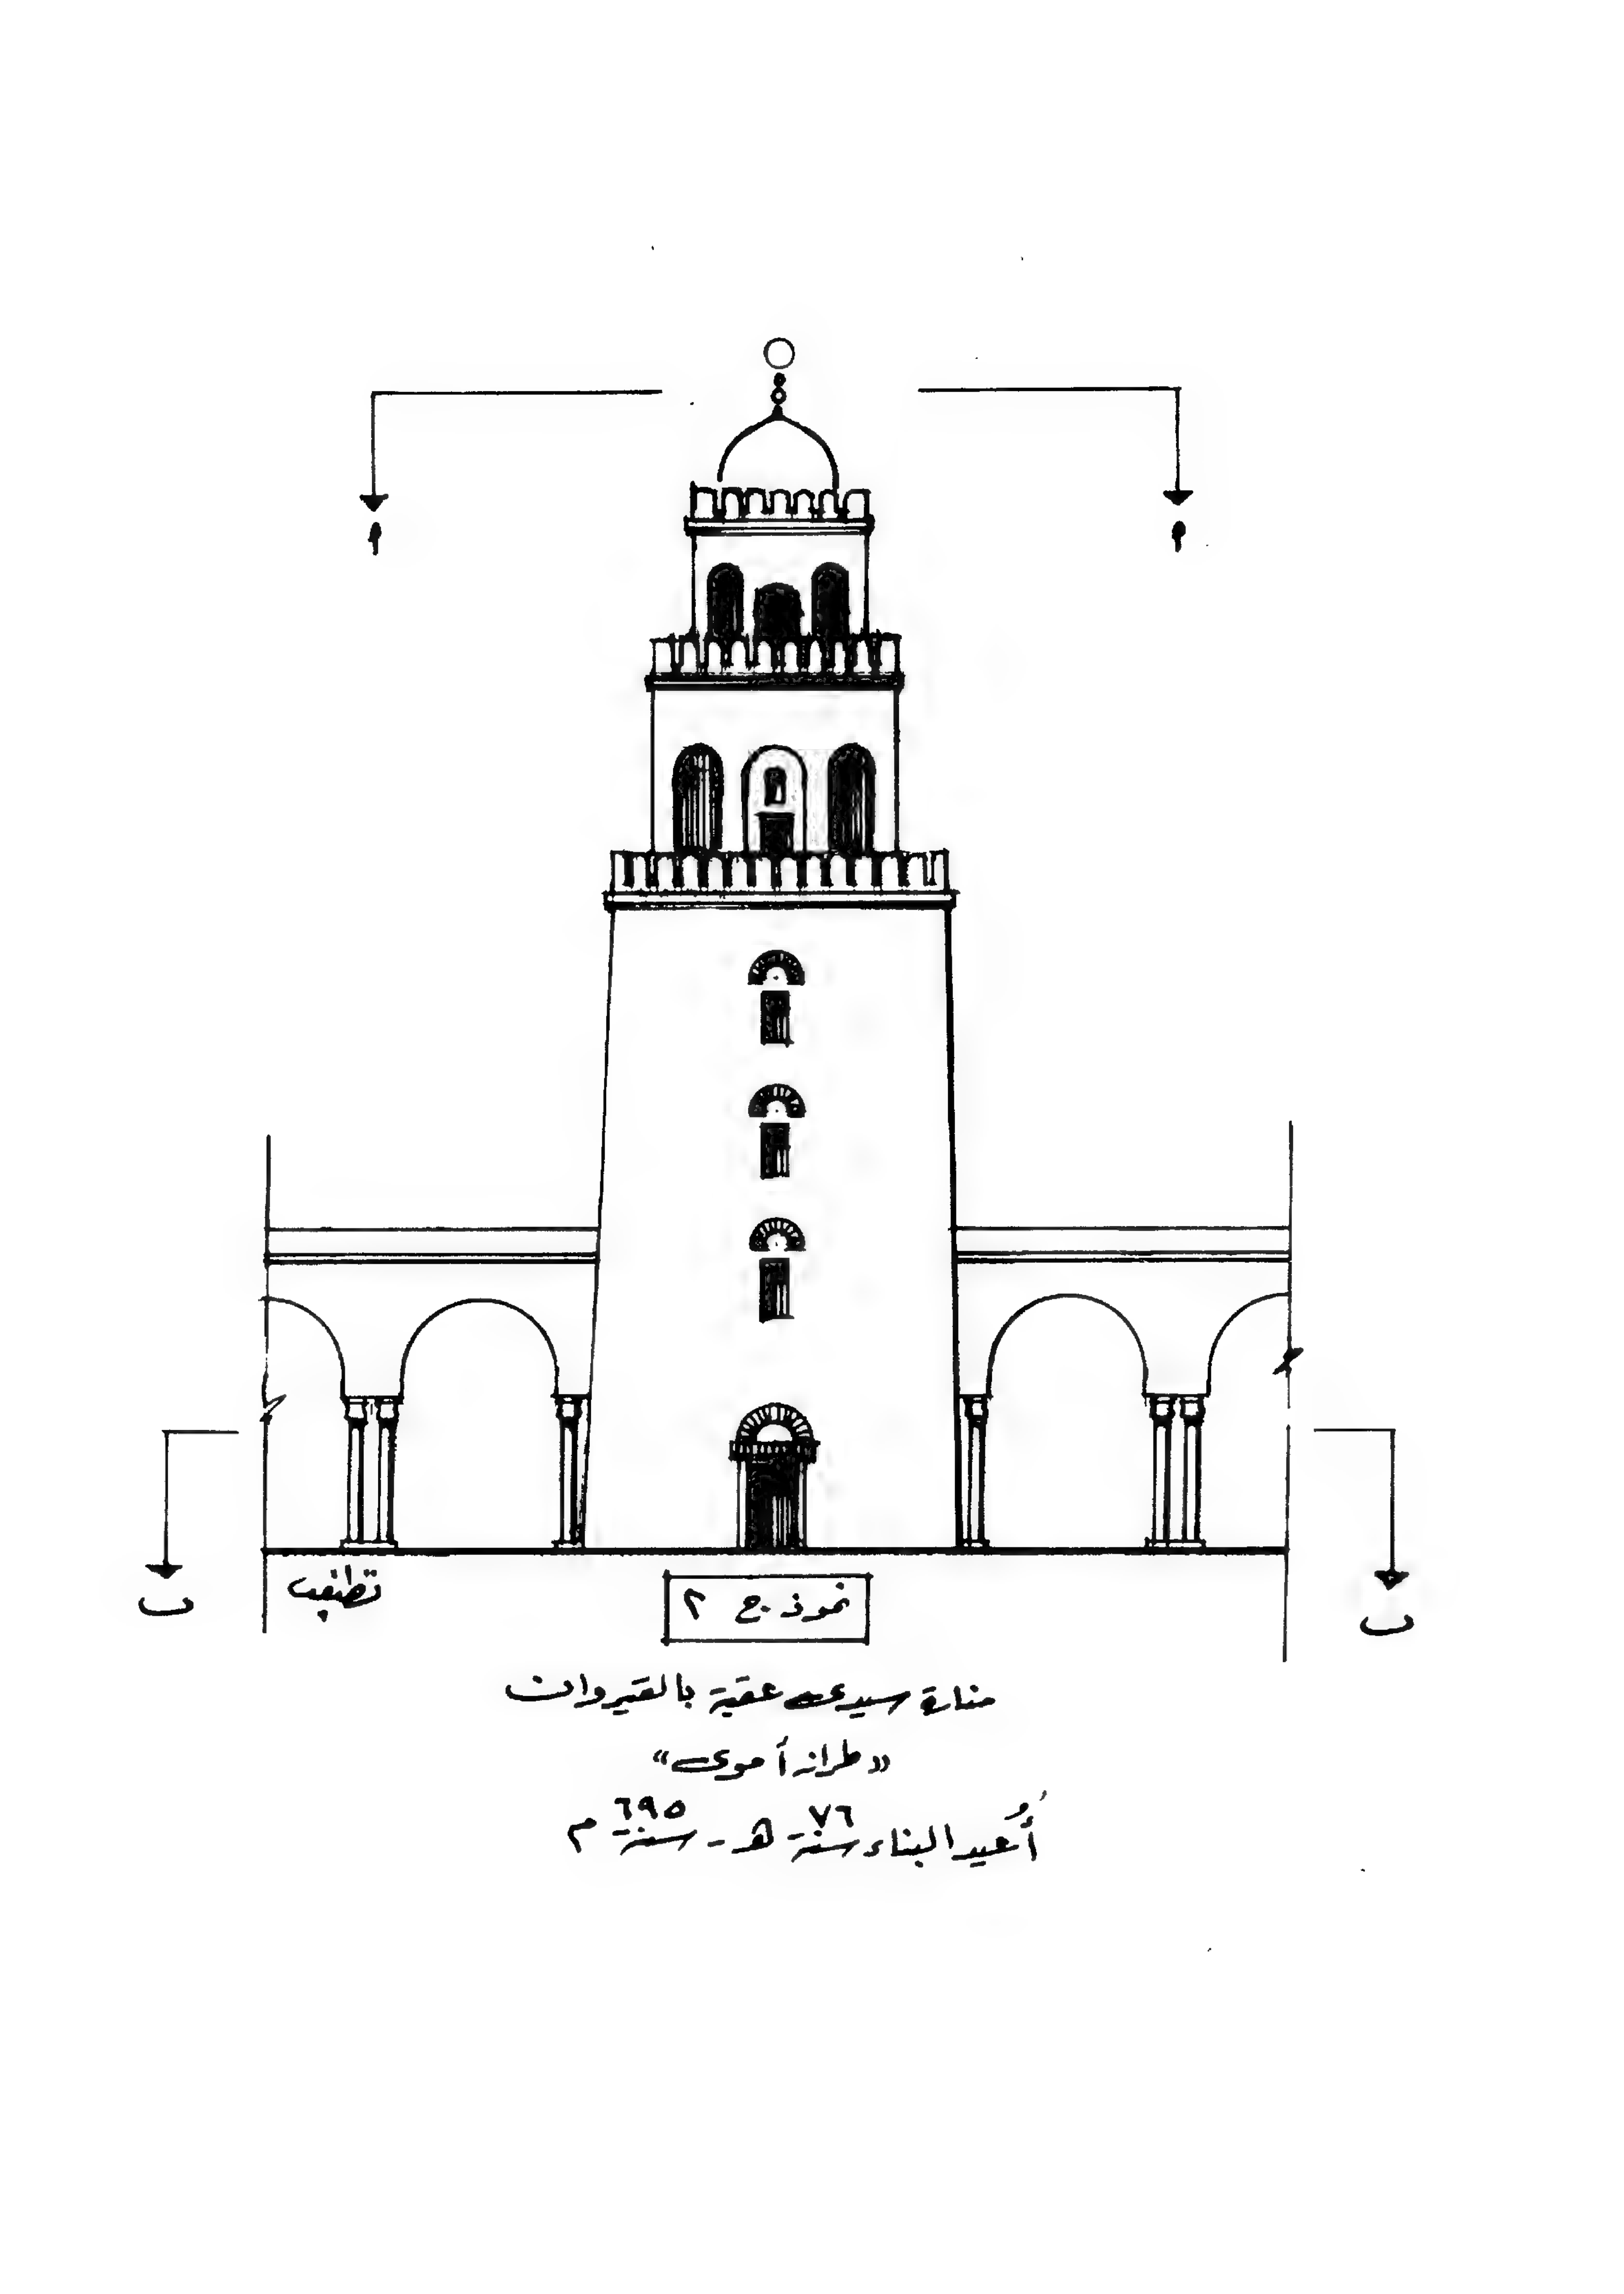 نموذج ٢
منارة سيدى عقبة بالقيروان
«طراز أموى»
أُعيد البناء سنة ٧٦ هـ - سنة ٦٩٥ م